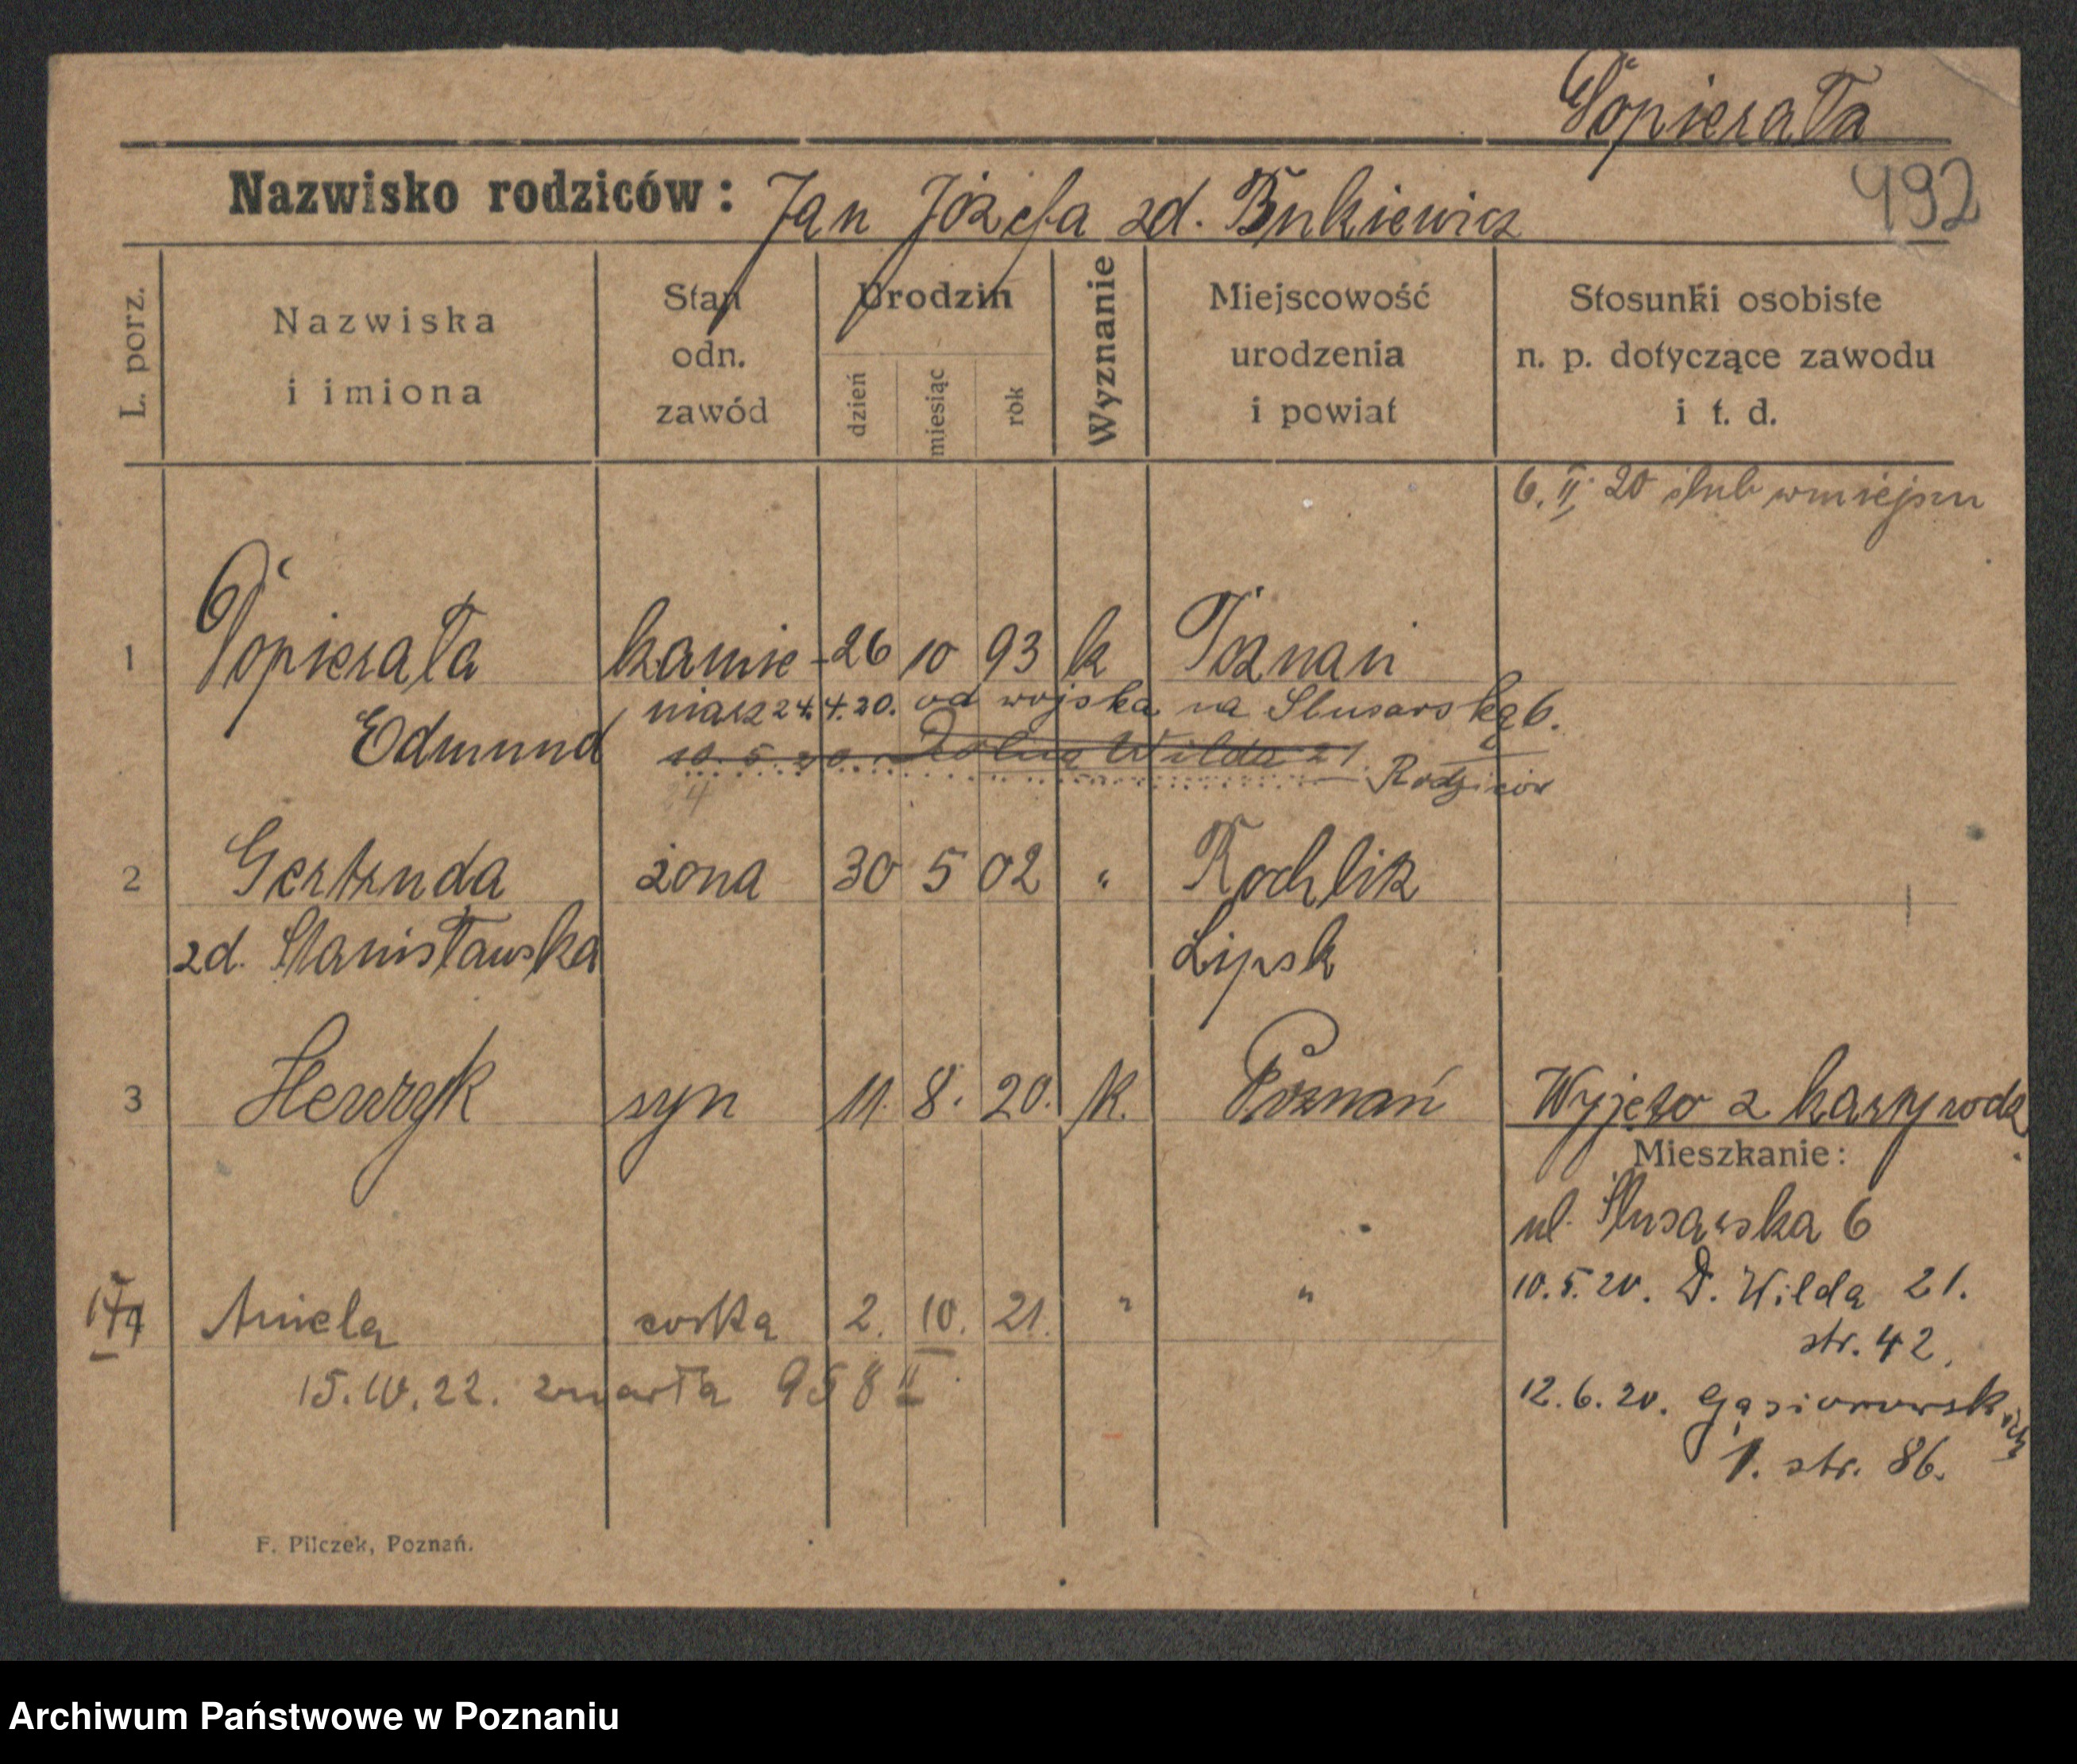 Popierała
Nazwisko rodziców: Jan Józefa zd. Bukiewicz
492
L. porz.
Nazwiska
i imiona
Stan
odn.
zawód
Urodzin
dzień
miesiąc
rok
Wyznanie
Miejscowość
urodzenia
i powiat
Stosunki osobiste
n. p. dotyczące zawodu
i t. d.
6. II. 20 ślub w miejscu
1 Popierała kamie- 26 10 93 k Poznań
niarz 24.4.20. od wojska na Slusarską 6.
Edmund 10.5.20 Dolna Wilda 21.
Rodziców
4
2 Gertruda żona 30 5 02 " Rochlitz
zd. Stanisławska Lipsk
3 Henryk syn 11. 8. 20. k. Poznań Wyjęto z karty rodz
Mieszkanie:
ul. Slusarska 6
10.5.20. D. Wilda 21.
str. 42.
Aniela corka 2. 10. 21. " "
15.IV.22. zmarła 958 II
12.6.20. Gąsiorowskich
1. str. 86.
F. Pilczek, Poznań.
Archiwum Państwowe w Poznaniu